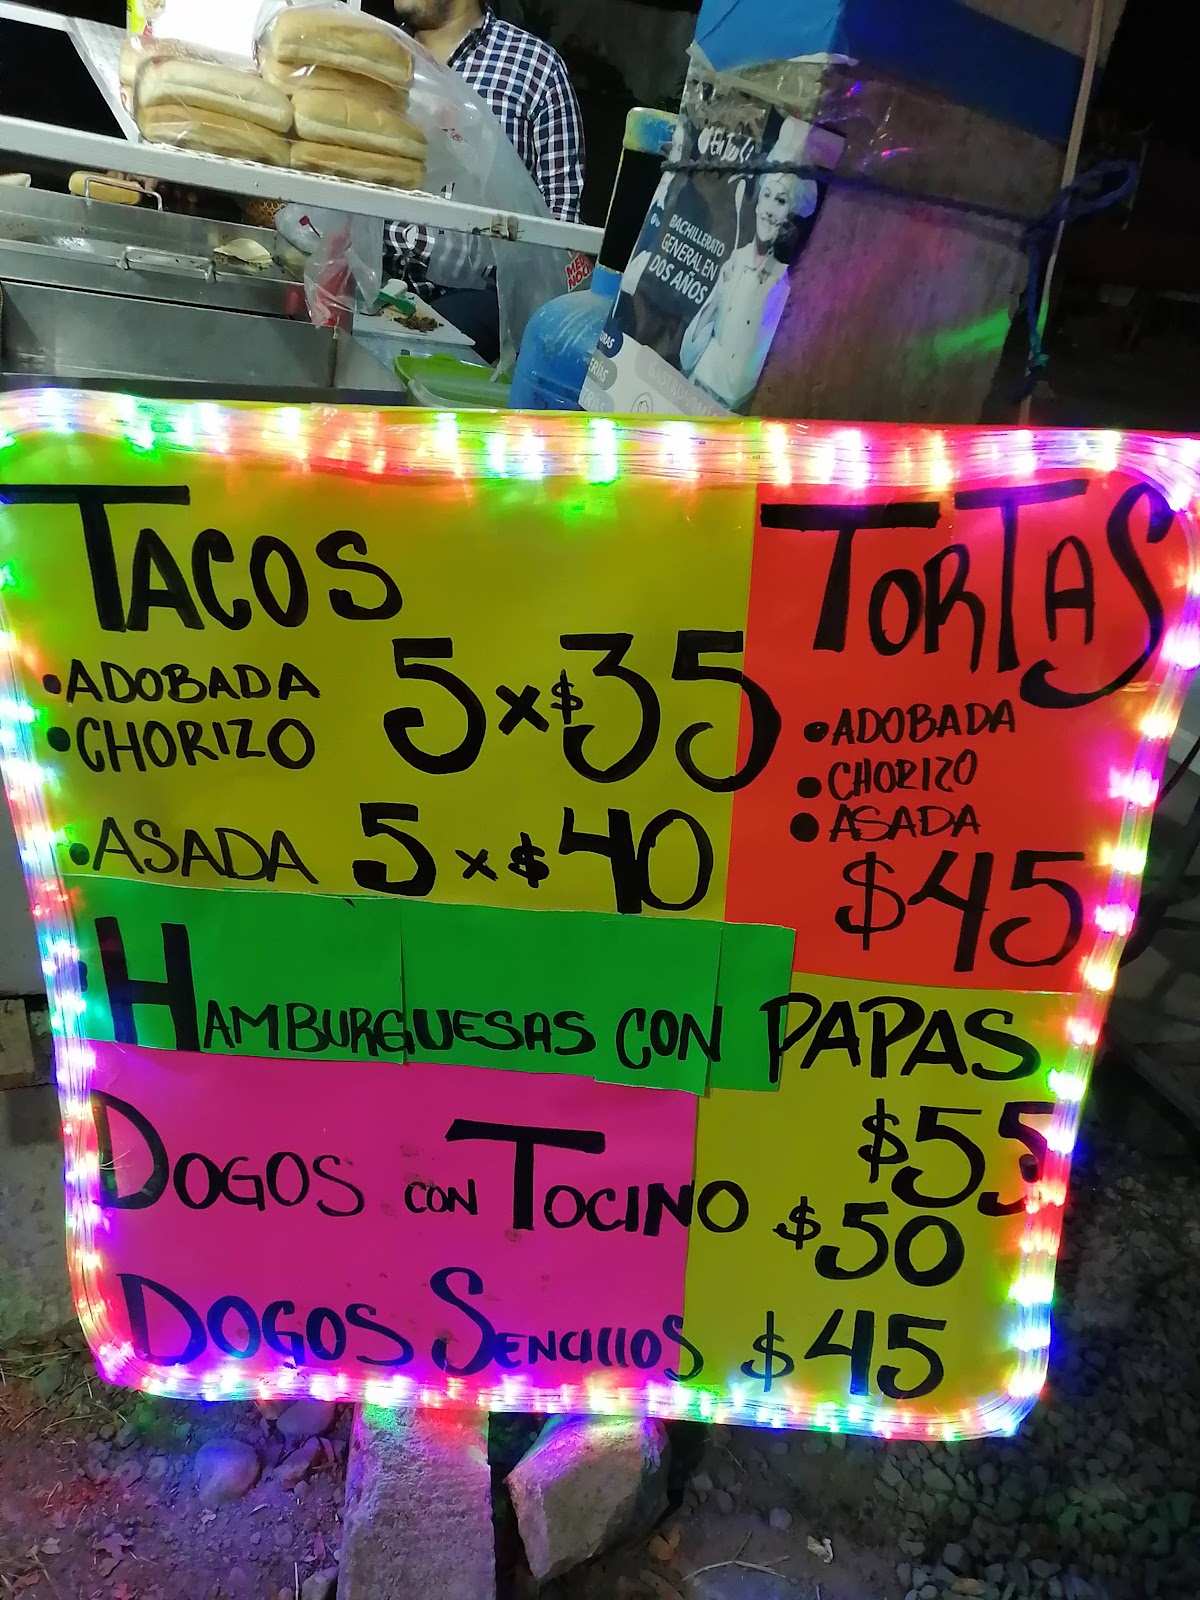 BACHILLERATO
GENERAL EN
DOS AÑOS
TACOS
•ADOBADA
•CHORIZO
5 x $35
•ASADA 5 x $40
TORTAS
•ADOBADA
•CHORIZO
•ASADA
$45
HAMBURGUESAS CON PAPAS
$55
DOGOS CON TOCINO $50
DOGOS SENCILLOS $45